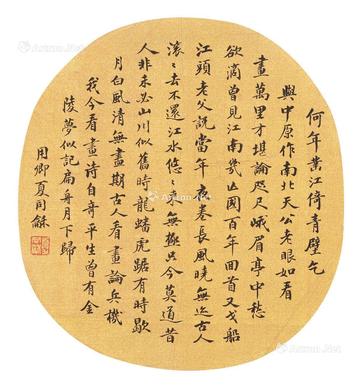 何年鑿江倚青壁乞
與中原作南北天公老眼如看
畫萬里才堪論咫尺峨眉亭中愁
欲滴曾見江南幾亡國百年回首又戈船
江頭老父說當年夜卷長風曉無迹古人
滾〻去不還江水悠〻來無極只今莫道昔
人非未必山川似舊時龍蟠虎踞有時歇
月白風清無盡期古人看畫論兵機
我今看畫詩自奇平生曾有金
陵夢似記扁舟月下歸
用卿夏同龢